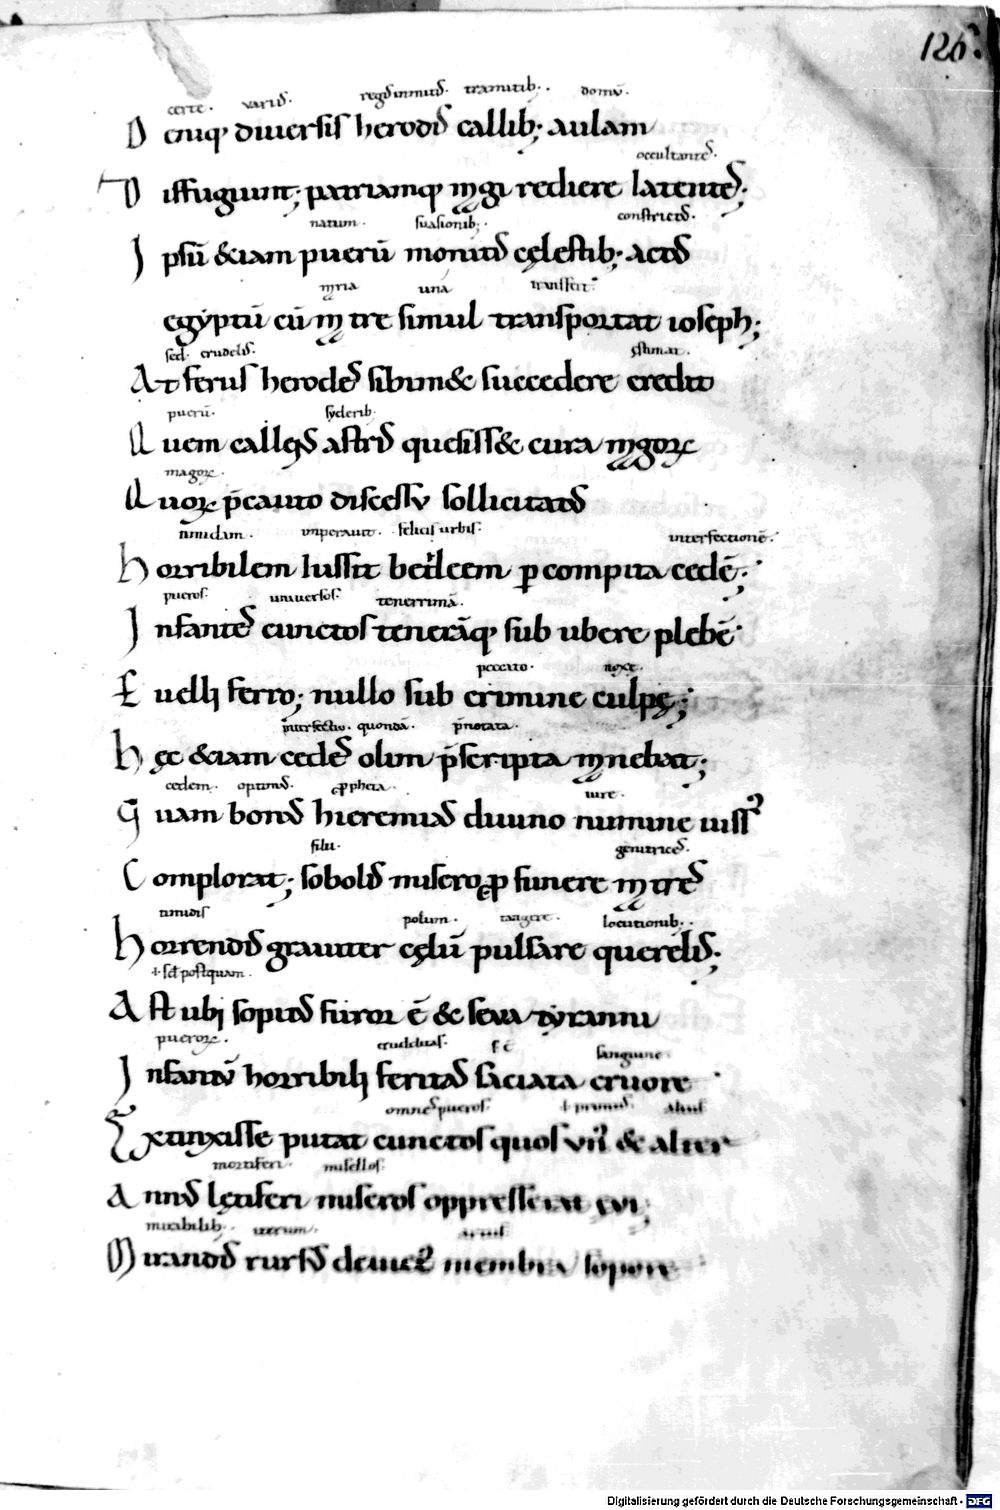 126.
certe. variis. regis inmitis. tramitib;. domū.
Deniq; diuersis herodis callib; aulam
occultantes.
Diffugiunt; patriamq; mgi rediere latentes;
natum. suasionib;. constrictus.
Ipsū &iam puerū monitis cęlestib; actus
maria una transfert
egyptū cū mtre simul transportat ioseph;
sed. crudelis. ęstimat.
At ferus herodes sibimet succedere credit
puerū. syderib;
Quem callens astris quesiss& cura mgoꝝ
magoꝝ.
Quoꝝ p̄cauto discessu sollicitatus
timidam. imperauit. felicis urbis. interfectionē.
Horribilem iussit betleem ꝑ compita cedē;
pueros. uniuersos. tenerrimā.
Infantes cunctos tenerāq; sub ubere plebē
peccato. noxę.
Euelli ferro; nullo sub crimine culpę;
interfectio. quondā. p̄notata.
Hęc &iam cedes olim p̄scripta mnebat;
cedem. optimus. ꝓpheta. iure.
Quam bonus hieremias diuino numine iussus
filii. genitrices.
Complorat; sobolis misero ꝓ funere mtres
timidis polum. tangere. locutionib;.
Horrendis grauiter cęlū pulsare querelis;
.i. sed postquam.
Ast ubi sopitus furor ē & seua tyranni
pueroꝝ. crudelitas. sanguine
Infantū horribili feritas saciata cruore
omnes pueros. .i. primus. alius
Extinxisse putat cunctos quos unus & alter
mortiferi. misellos.
Annus lętiferi miseros oppresserat eui;
mirabilib;. iterum. artus
Mirandis rursus deuictus membra sopore
Digitalisierung gefördert durch die Deutsche Forschungsgemeinschaft - DFG